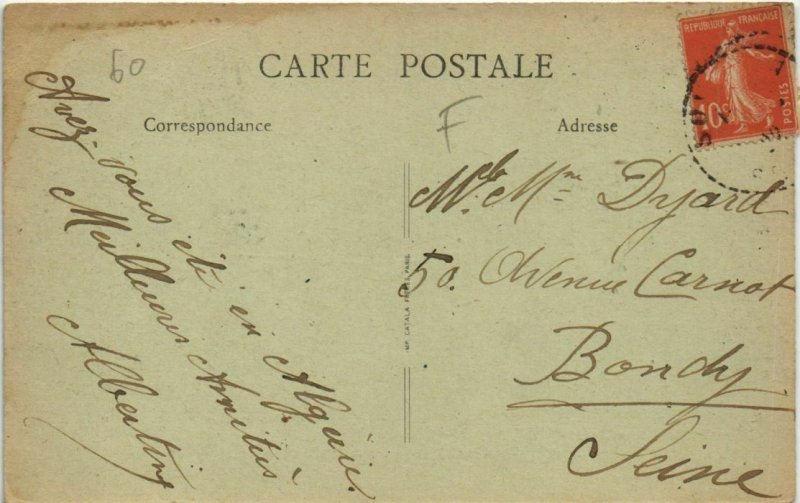 60
CARTE POSTALE
F
Correspondance
Adresse
Avez-vous été en Algérie
Meilleures Amitiés
Albertine
Mr & Mme Dyard
50. Avenue Carnot
Bondy
Seine
IMP. CATALA FRÈRES, PARIS
REPUBLIQUE FRANÇAISE
POSTES